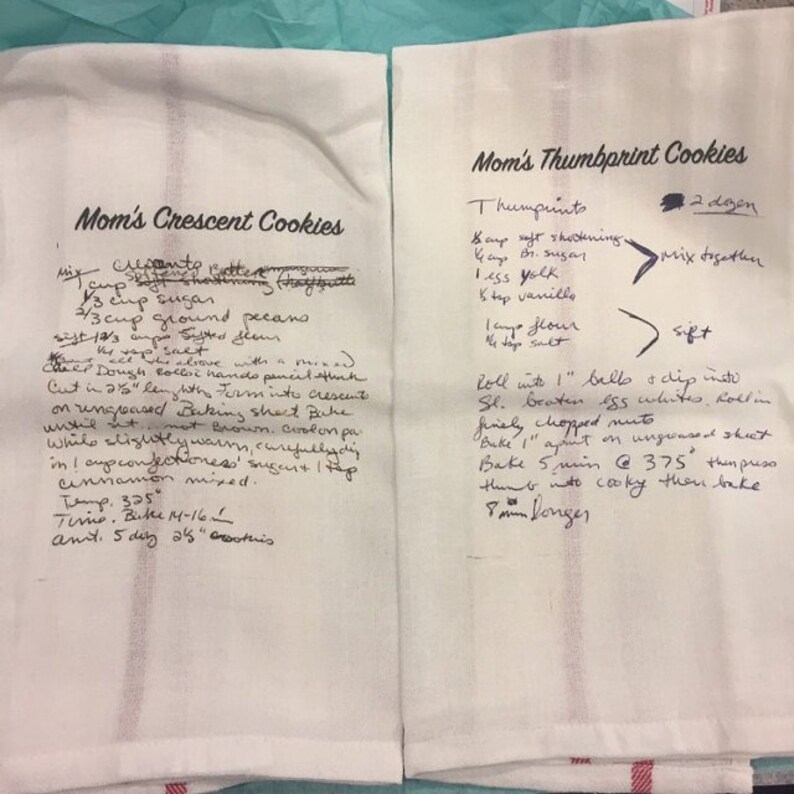 Mom's Crescent Cookies
Cresents
Mix
softened Butter
1 cup soft shortening (half butter
1/3 cup sugar
2/3 cup ground pecans
sift 1 2/3 cups sifted flour
1/4 tsp salt
all the above with a mixer)
Chill Dough. Roll hands pencil thick
Cut in 2½" lengths Form into crescents
on ungreased Baking sheet Bake
until set... not Brown. Cool on pa
while slightly warm, carefully dip
in 1 cup confectioness' sugar + 1 tsp
cinnamon mixed.
Temp. 325°
Time. Bake 14-16
amt. 5 doz 2½" cookies
Mom's Thumbprint Cookies
Thumprints 2 dozen
cup soft shortening
¼ cup Br. sugar
1 egg yolk
Mix together
½ tsp vanilla
1 cup flour
¼ tsp salt
sift
Roll into 1" balls & dip into
Sl. beaten egg whites. Roll in
finely chopped nuts
Bake 1" apart on ungreased sheet
Bake 5 min @ 375° then press
thumb into cooky then bake
8 min longer